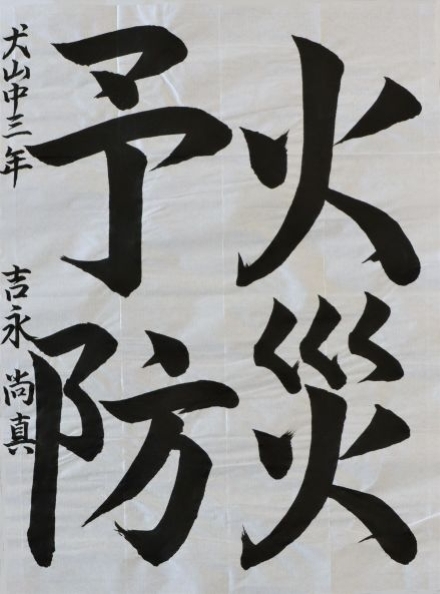 火災
予防
犬山中三年
吉永尚真